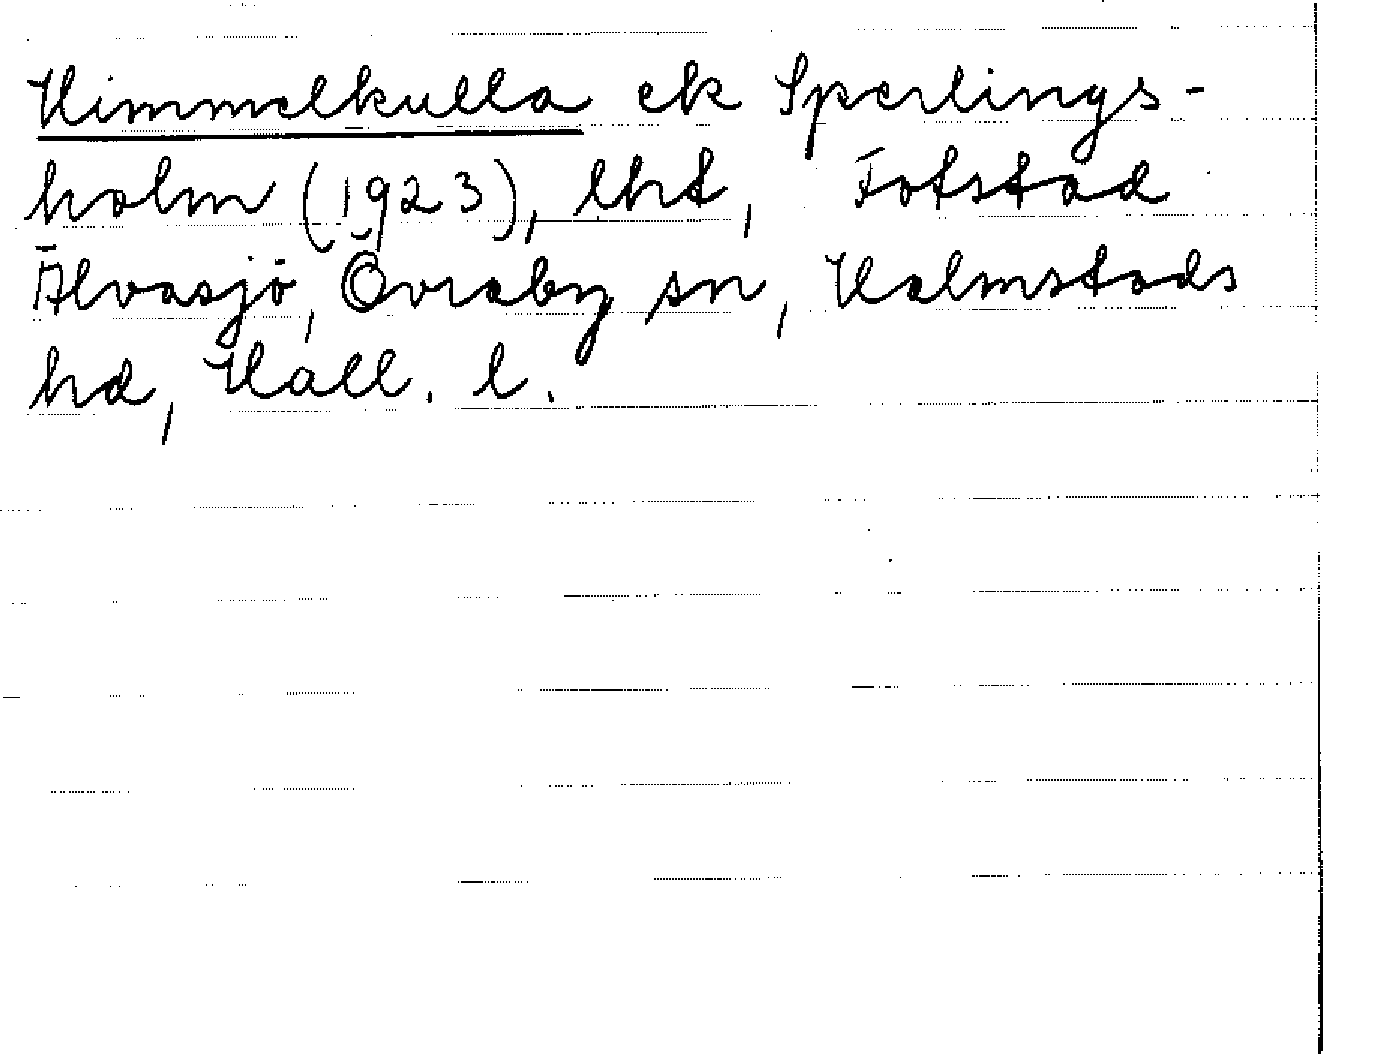 Himmelkulla ek Sperlings-
holm (1923), lht, Fotstad
Älvasjö, Övraby sn, Halmstads
hd, Hall. l.